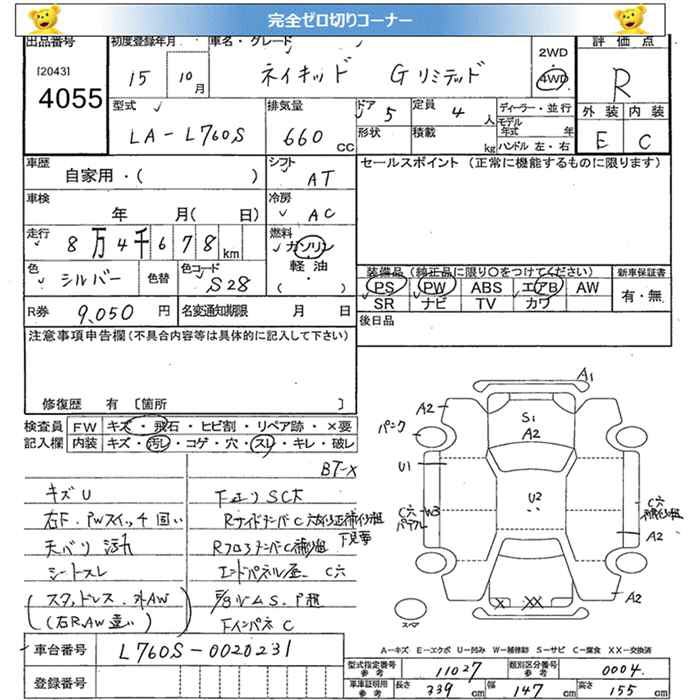 完全ゼロ切りコーナー
出品番号
[2043]
4055
初度登録年月
15 10月
車名・グレード
ネイキッド Gリミテッド
2WD
4WD
評価点
R
外装 内装
E C
型式
LA-L760S
排気量
660 cc
ドア 5
定員 4 人
形状
積載 kg
ディーラー・並行
モデル年式 年
ハンドル 左・右
車歴
自家用・( )
シフト
AT
セールスポイント (正常に機能するものに限ります)
車検
年 月( 日)
冷房
AC
走行
8万4千678km
燃料
ガソリン
軽油
( ・ )
色
シルバー
色替
色コード
S28
装備品(純正品に限り○をつけてください)
新車保証書
PS PW ABS エアB AW
SR ナビ TV カワ
有・無
R券 9,050円
名変通知期限 月 日
後日品
注意事項申告欄(不具合内容等は具体的に記入して下さい)
修復歴 有 [箇所 ]
検査員記入欄
FW キズ・飛石・ヒビ割・リペア跡・×要
内装 キズ・汚レ・コゲ・穴・スレ・キレ・破レ
BT-X
キズU
右F.PWスイッチ固い
天バリ汚れ
シートスレ
(スタッドレス.外AW
(右R.AW違い)
下廻りSC大
エンドパネル歪.C穴
FインパネC
A1
A2
S1
A2
パンク
U1
U2
C穴
W3
C穴
A2
X XX
A2
スペア
A-キズ E-エクボ U-凹み W-補修跡 S-サビ C-腐食 XX-交換済
車台番号
L760S-0020231
登録番号
型式指定番号 参考 11027
類別区分番号 参考 0004
車庫証明用 参考
長さ 339cm 幅 147cm 高さ 155cm